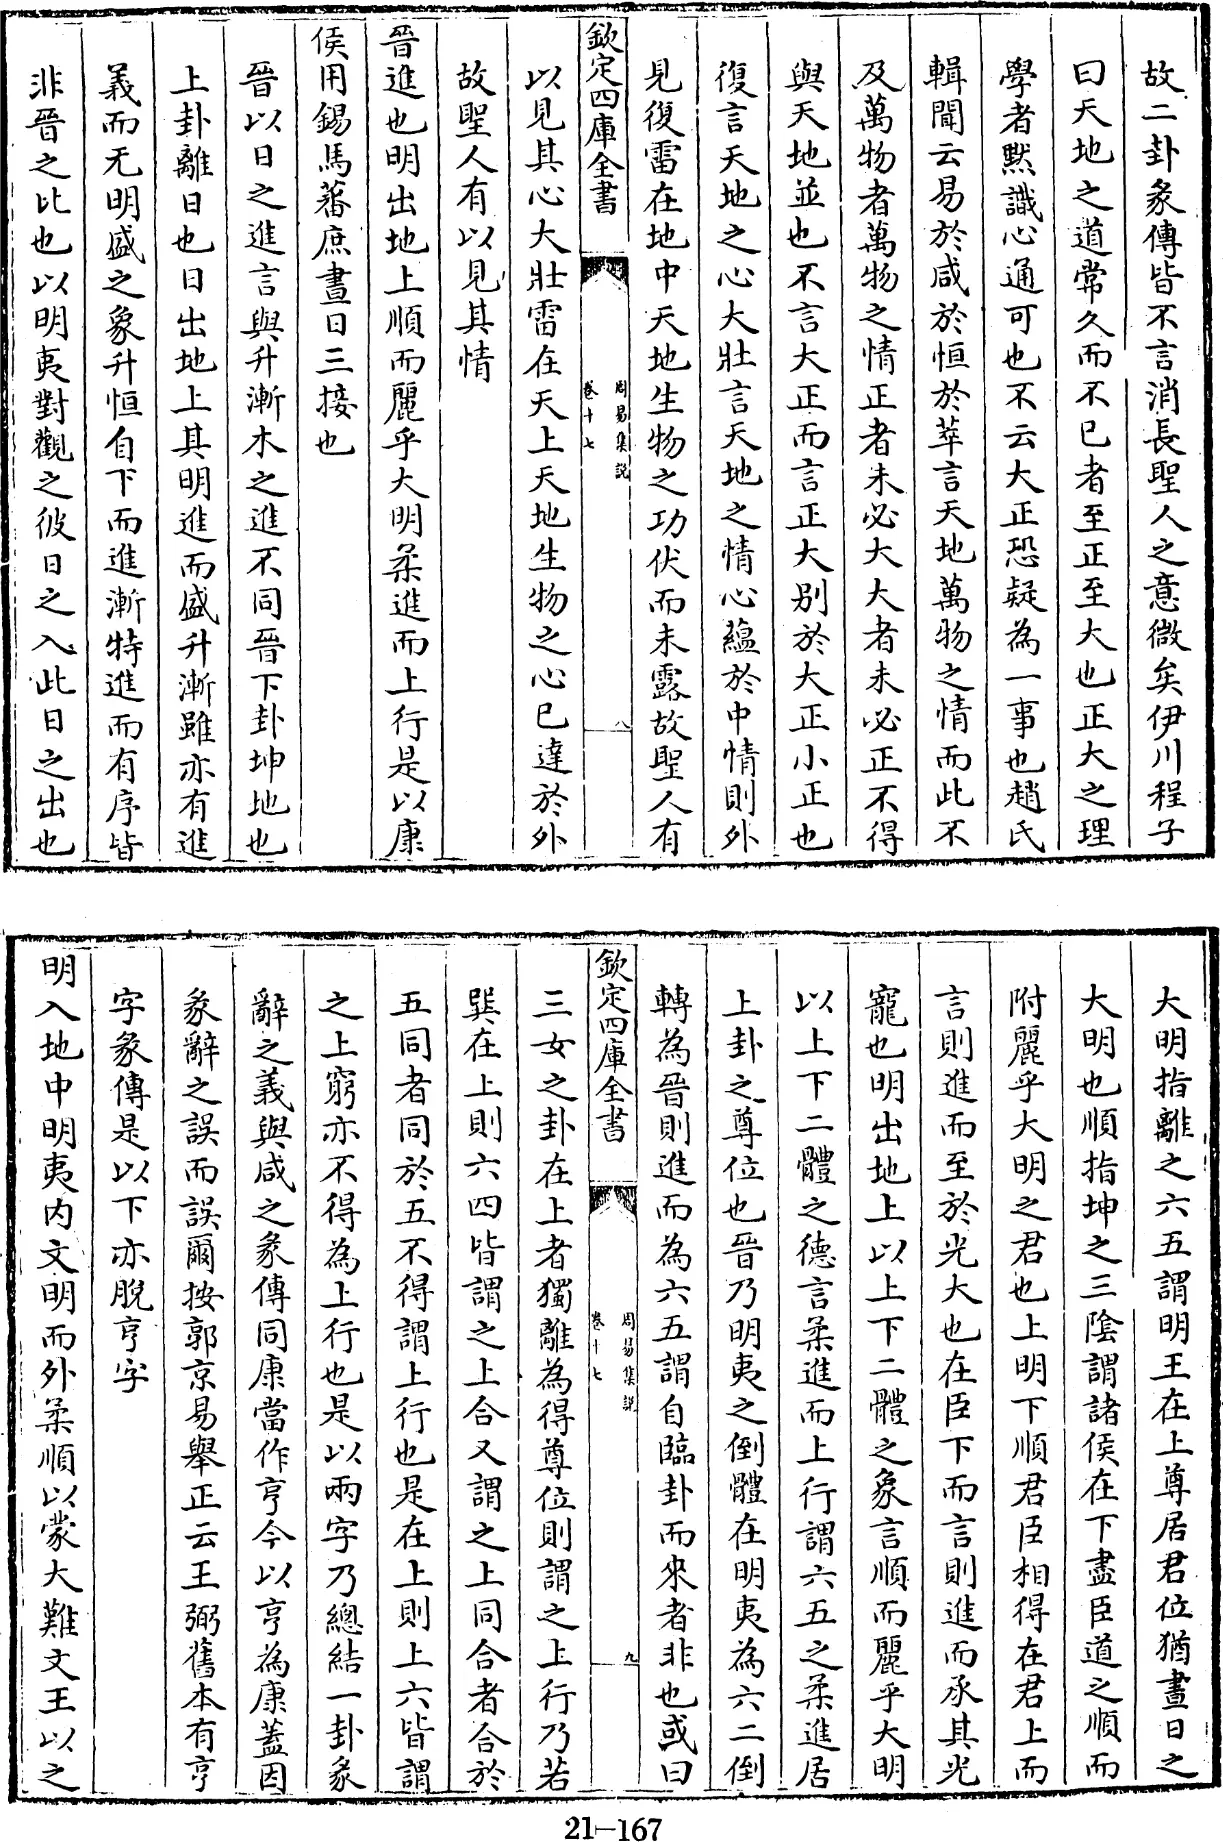 故二卦彖傳皆不言消長聖人之意微矣伊川程子
曰天地之道常久而不已者至正至大也正大之理
學者黙識心通可也不云大正恐疑為一事也趙氏
輯聞云易於咸於恒於萃言天地萬物之情而此不
及萬物者萬物之情正者未必大大者未必正不得
與天地並也不言大正而言正大别於大正小正也
復言天地之心大壯言天地之情心蘊於中情則外
見復雷在地中天地生物之功伏而未露故聖人有
欽定四庫全書
周易集説
卷十七
八
以見其心大壯雷在天上天地生物之心已達於外
故聖人有以見其情
晉進也明出地上順而麗乎大明柔進而上行是以康
侯用錫馬蕃庶晝日三接也
晉以日之進言與升漸木之進不同晉下卦坤地也
上卦離日也日出地上其明進而盛升漸雖亦有進
義而无明盛之象升恒自下而進漸特進而有序皆
非晉之比也以明夷對觀之彼日之入此日之出也
大明指離之六五謂明王在上尊居君位猶晝日之
大明也順指坤之三陰謂諸侯在下盡臣道之順而
附麗乎大明之君也上明下順君臣相得在君上而
言則進而至於光大也在臣下而言則進而承其光
寵也明出地上以上下二體之象言順而麗乎大明
以上下二體之德言柔進而上行謂六五之柔進居
上卦之尊位也晉乃明夷之倒體在明夷為六二倒
轉為晉則進而為六五謂自臨卦而來者非也或曰
欽定四庫全書
周易集説
卷十七
九
三女之卦在上者獨離為得尊位則謂之上行乃若
巽在上則六四皆謂之上合又謂之上同合者合於
五同者同於五不得謂上行也是在上則上六皆謂
之上窮亦不得為上行也是以兩字乃總結一卦彖
辭之義與咸之彖傳同康當作亨今以亨為康蓋因
彖辭之誤而誤爾按郭京易舉正云王弼舊本有亨
字彖傳是以下亦脫亨字
明入地中明夷内文明而外柔順以蒙大難文王以之
21-167